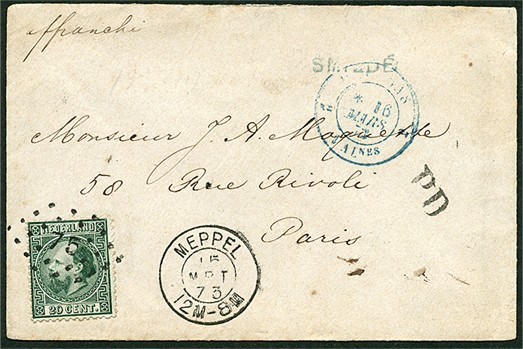 Affranchi
SMILDE
PAYS-BAS
* 16
MARS
73
VALNES
Monsieur J. A. Magniente
58 Rue Rivoli
Paris
PD
NEDERLAND
75
20 CENT.
MEPPEL
15
MRT
73
12M-8M